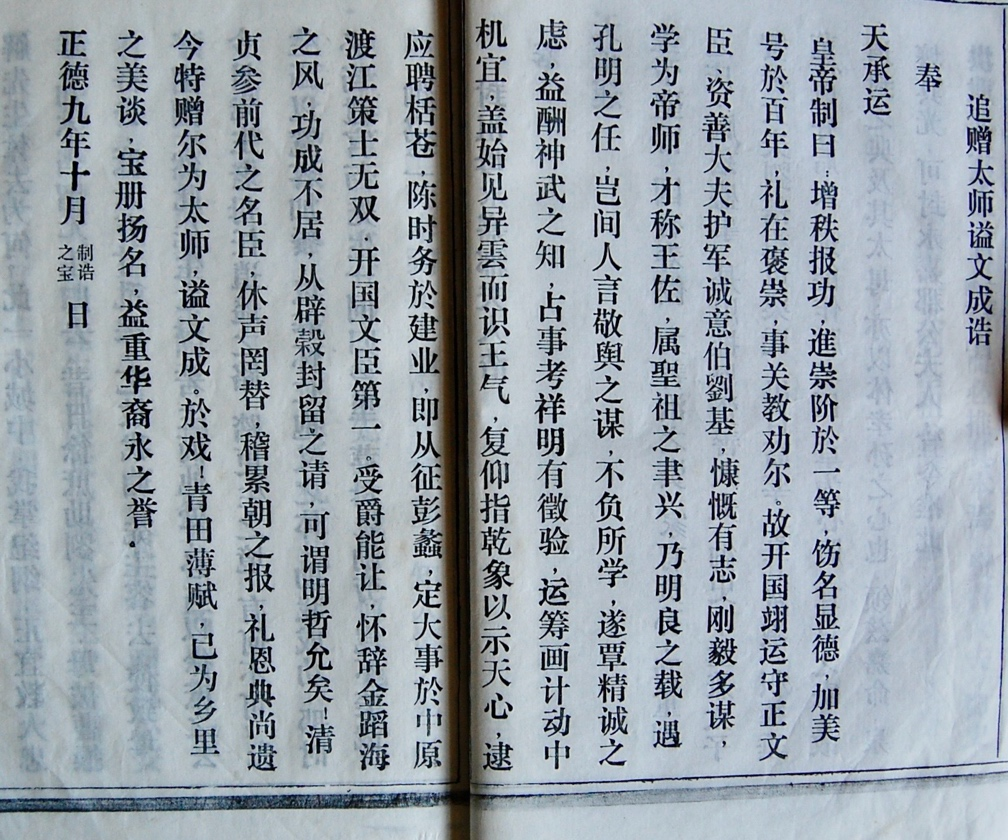 追赠太师谥文成诰
奉
天承运
皇帝制曰：增秩报功，進崇阶於一等，饬名显德，加美
号於百年，礼在褒崇，事关教劝尔。故开国翊运守正文
臣，资善大夫护军诚意伯劉基，慷慨有志，刚毅多谋，
学为帝师，才称王佐，属聖祖之聿兴，乃明良之载，遇
孔明之任，岂间人言敬舆之谋，不负所学，遂覃精诚之
虑，益酬神武之知，占事考祥明有徵验，运筹画计动中
机宜，盖始见异雲而识王气，复仰指乾象以示天心，逮
应聘栝苍，陈时务於建业，即从征彭蠡，定大事於中原
渡江策士无双，开国文臣第一。受爵能让，怀辞金蹈海
之风，功成不居，从辟榖封留之请，可谓明哲允矣！清
贞参前代之名臣，休声罔替，稽累朝之报，礼恩典尚遗
今特赠尔为太师，谥文成。於戏！青田薄赋，已为乡里
之美谈，宝册扬名，益重华裔永之誉．
正德九年十月 制诰之宝 日